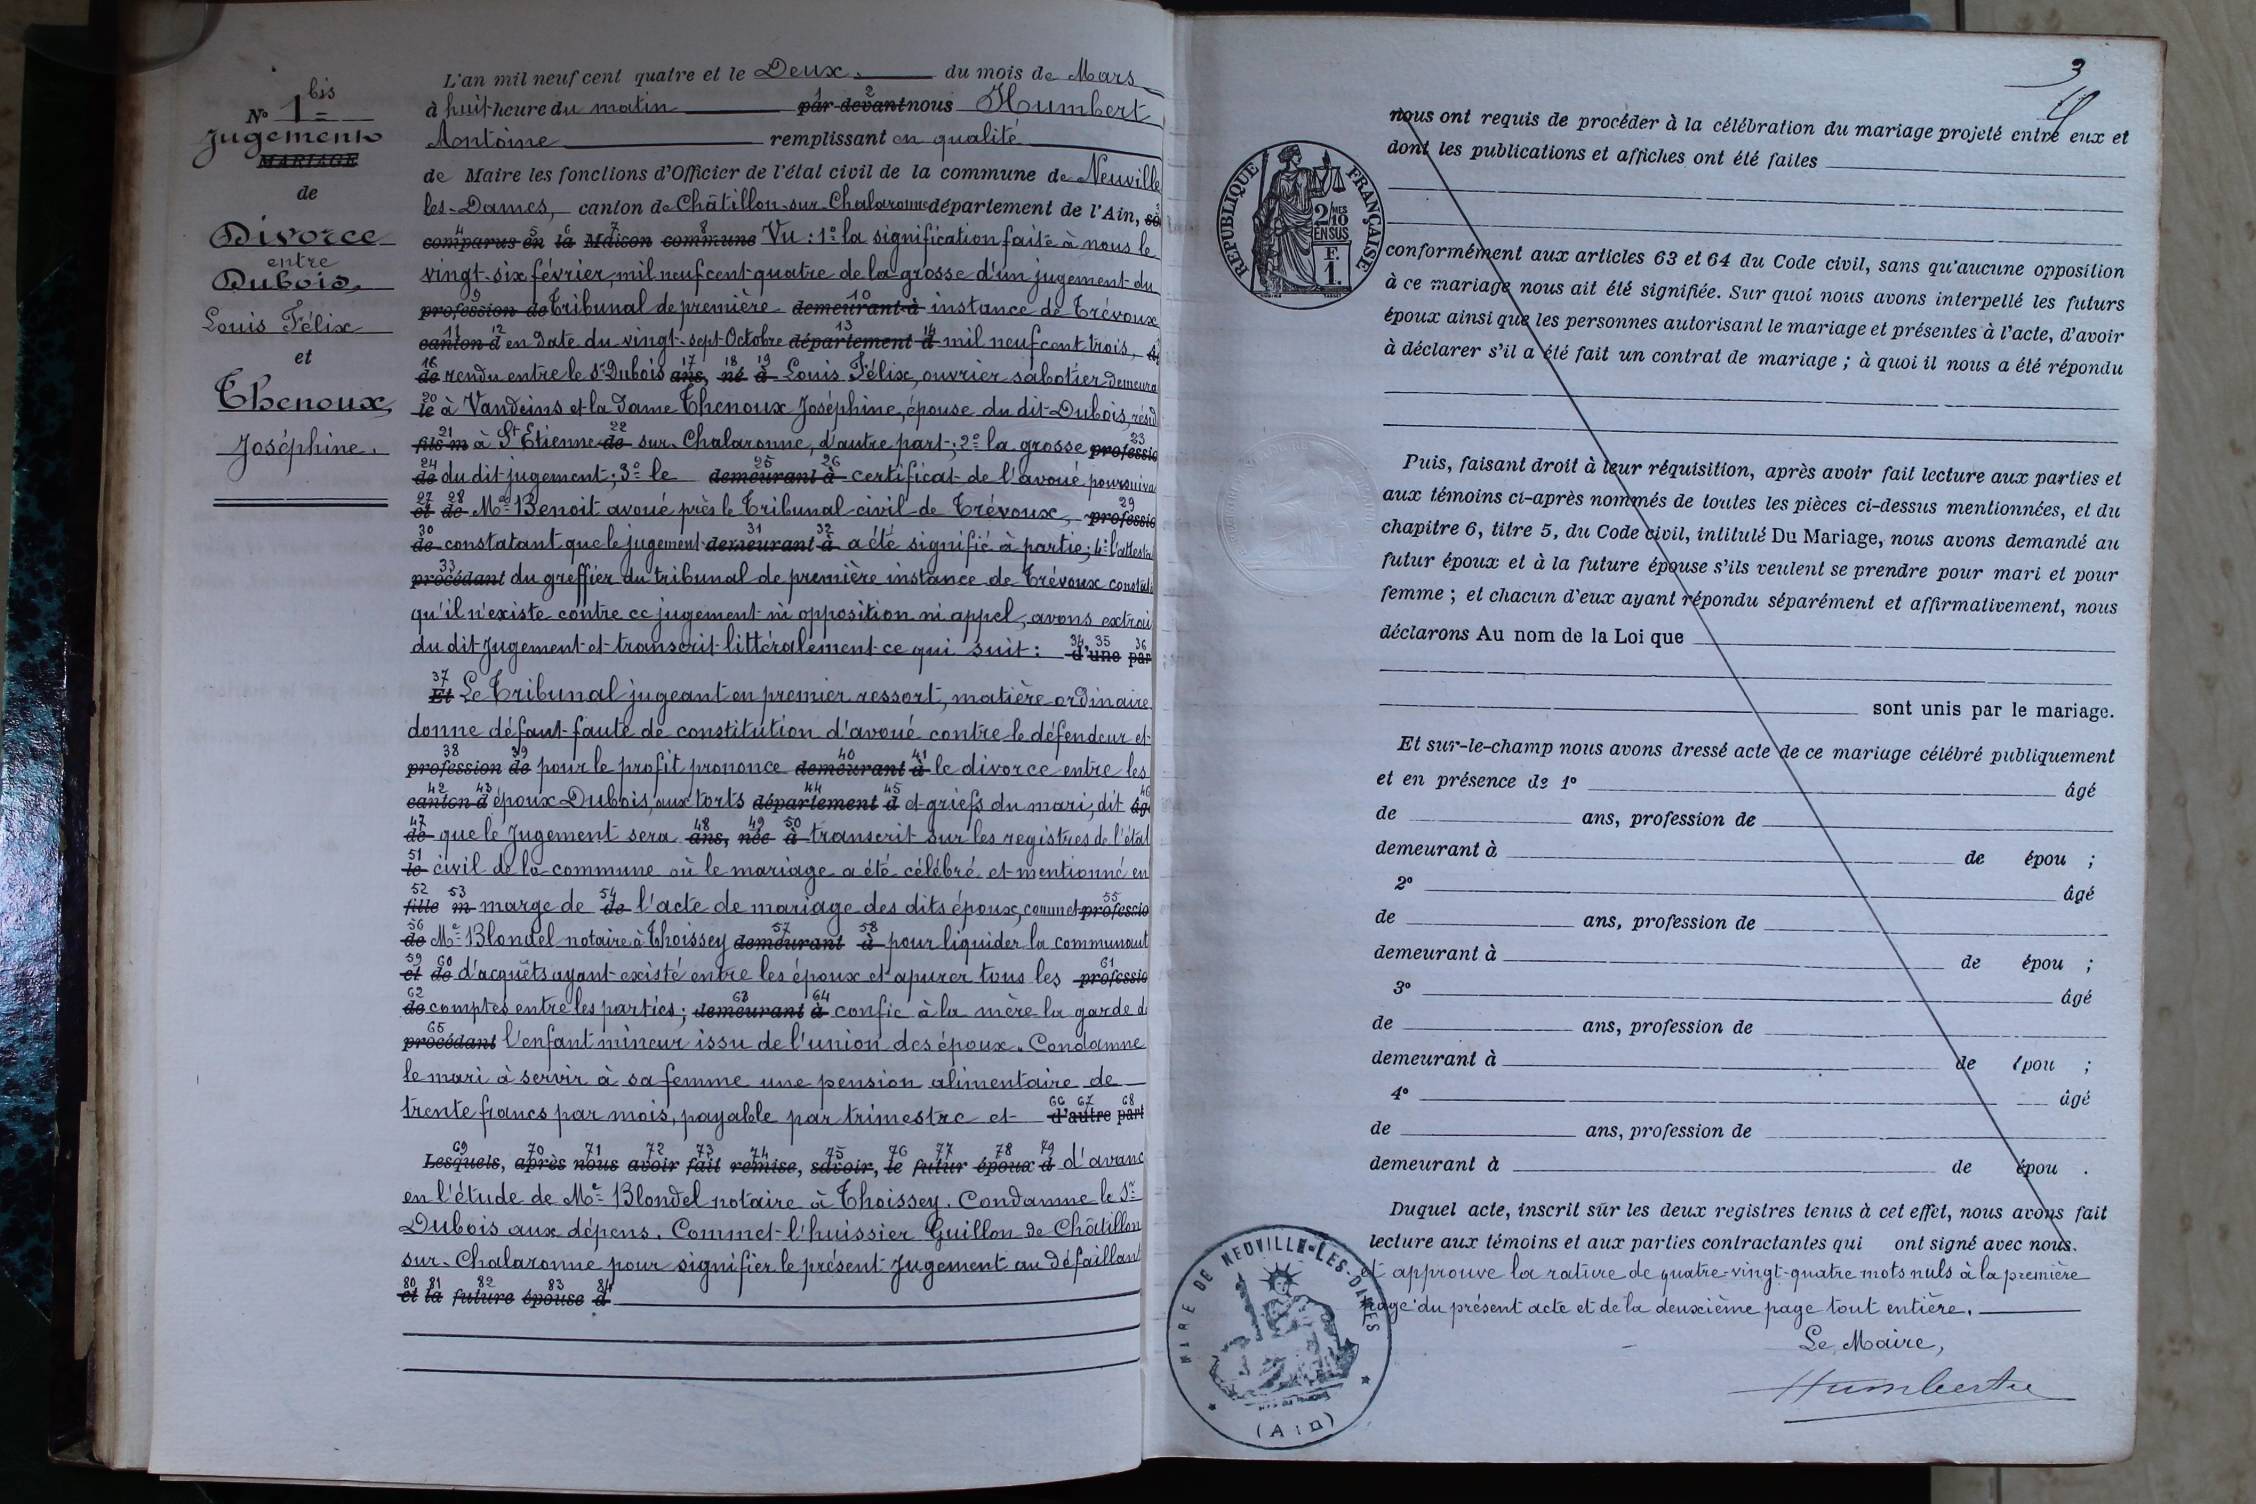 N° 1 bis
Jugement
MARIAGE
de
Divorce
entre
Dubois,
Louis Félix
et
Thenoux,
Joséphine.
L'an mil neuf cent quatre et le Deux, du mois de Mars
à huit heure du matin par devant nous Humbert
1 2
Antoine remplissant en qualité
de Maire les fonctions d'Officier de l'état civil de la commune de Neuville
les-Dames, canton de Châtillon-sur-Chalaronne département de l'Ain, so
3
4 5 6 7 8
comparus en la Maison commune Vu : 1° la signification faite à nous le
vingt-six février, mil neuf cent quatre de la grosse d'un jugement du
9 10
profession de Tribunal de première demeurant à instance de Trévoux
11 12 13 14
canton d en date du vingt-sept Octobre département d mil neuf cent trois,
16 17 18 19
de rendu entre le Sr Dubois ans, né à Louis Félix, ouvrier sabotier demeura
20
le à Vandeins et la dame Thenoux Joséphine, épouse du dit Dubois, résid
21 22 23
fils m à St Etienne de sur-Chalaronne, d'autre part; 2° la grosse professio
24 25 26
de du dit jugement; 3° le demeurant à certificat de l'avoué poursuiva
27 28 29
et de Me Benoit avoué près le Tribunal civil de Trévoux, professio
30 31 32
de constatant que le jugement demeurant à a été signifié à partie; 4° l'attesta
33
procédant du greffier du tribunal de première instance de Trévoux constat
qu'il n'existe contre ce jugement ni opposition ni appel, avons extrai
34 35 36
du dit Jugement et transcrit littéralement ce qui suit : d'une par
37
Et Le Tribunal jugeant en premier ressort, matière ordinaire
donne défaut faute de constitution d'avoué contre le défendeur et
38 39 40 41
profession de pour le profit prononce demeurant à le divorce entre les
42 43 44 45 46
canton d époux Dubois, aux torts département d et griefs du mari, dit âgé
47 48 49 50
de que le Jugement sera ans, née à transcrit sur les registres de l'état
51
le civil de la commune où le mariage a été célébré et mentionné en
52 53 54 55
fille m marge de de l'acte de mariage des dits époux, commet professio
56 57 58
de Me Blondel notaire à Thoissey demeurant à pour liquider la communaut
59 60 61
et de d'acquêts ayant existé entre les époux et apurer tous les professio
62 63 64
de comptes entre les parties; demeurant à confie à la mère la garde d
65
procédant l'enfant mineur issu de l'union des époux. Condamne
le mari à servir à sa femme une pension alimentaire de
66 67 68
trente francs par mois, payable par trimestre et d'autre part
69 70 71 72 73 74 75 76 77 78 79
Lesquels, après nous avoir fait remise, savoir, le futur époux d d'avanc
en l'étude de Me Blondel notaire à Thoissey. Condamne le Sr
Dubois aux dépens. Commet l'huissier Guillon de Châtillon
sur-Chalaronne pour signifier le présent Jugement au défaillant
80 81 82 83 84
et la future épouse d
3
nous ont requis de procéder à la célébration du mariage projeté entre eux et
dont les publications et affiches ont été faites
RÉPUBLIQUE FRANÇAISE
2/10 MES
EN SUS
F.
1.
conformément aux articles 63 et 64 du Code civil, sans qu'aucune opposition
à ce mariage nous ait été signifiée. Sur quoi nous avons interpellé les futurs
époux ainsi que les personnes autorisant le mariage et présentes à l'acte, d'avoir
à déclarer s'il a été fait un contrat de mariage ; à quoi il nous a été répondu
Puis, faisant droit à leur réquisition, après avoir fait lecture aux parties et
aux témoins ci-après nommés de toutes les pièces ci-dessus mentionnées, et du
chapitre 6, titre 5, du Code civil, intitulé Du Mariage, nous avons demandé au
futur époux et à la future épouse s'ils veulent se prendre pour mari et pour
femme ; et chacun d'eux ayant répondu séparément et affirmativement, nous
déclarons Au nom de la Loi que
sont unis par le mariage.
Et sur-le-champ nous avons dressé acte de ce mariage célébré publiquement
et en présence de 1° âgé
de ans, profession de
demeurant à de épou ;
2° âgé
de ans, profession de
demeurant à de épou ;
3° âgé
de ans, profession de
demeurant à de épou ;
4° âgé
de ans, profession de
demeurant à de épou .
Duquel acte, inscrit sur les deux registres tenus à cet effet, nous avons fait
lecture aux témoins et aux parties contractantes qui ont signé avec nous.
et approuve la rature de quatre-vingt-quatre mots nuls à la première
page du présent acte et de la deuxième page tout entière.
Le Maire,
Humbert
MAIRE DE NEUVILLE-LES-DAMES
(AIN)